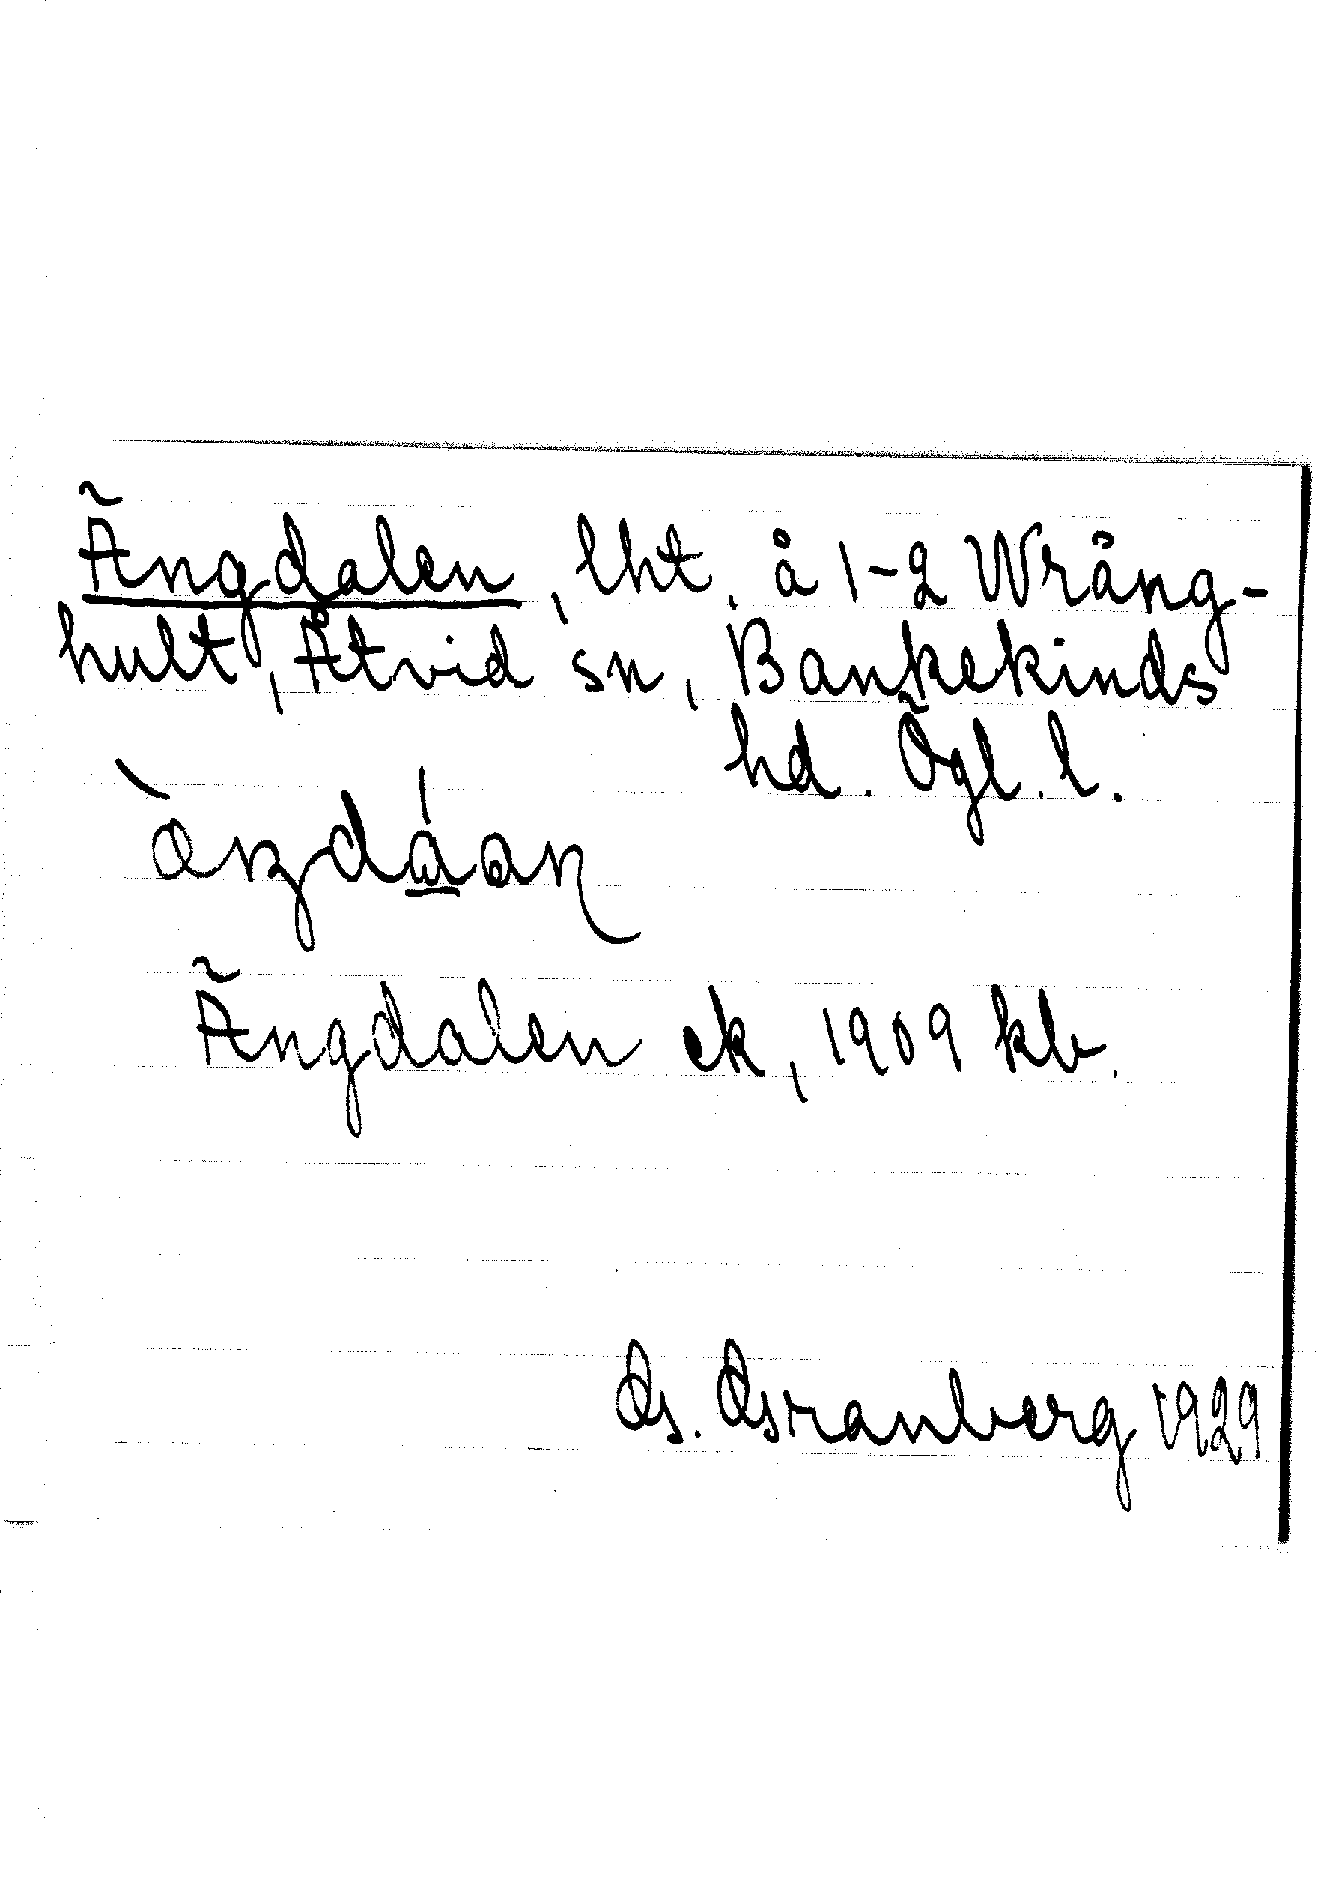 Ängdalen, lht. å 1-2 Wrång-
hult, Åtvid sn, Bankekinds
hd. Ögl. l.
Ängdalen ek, 1909 kb.
1929